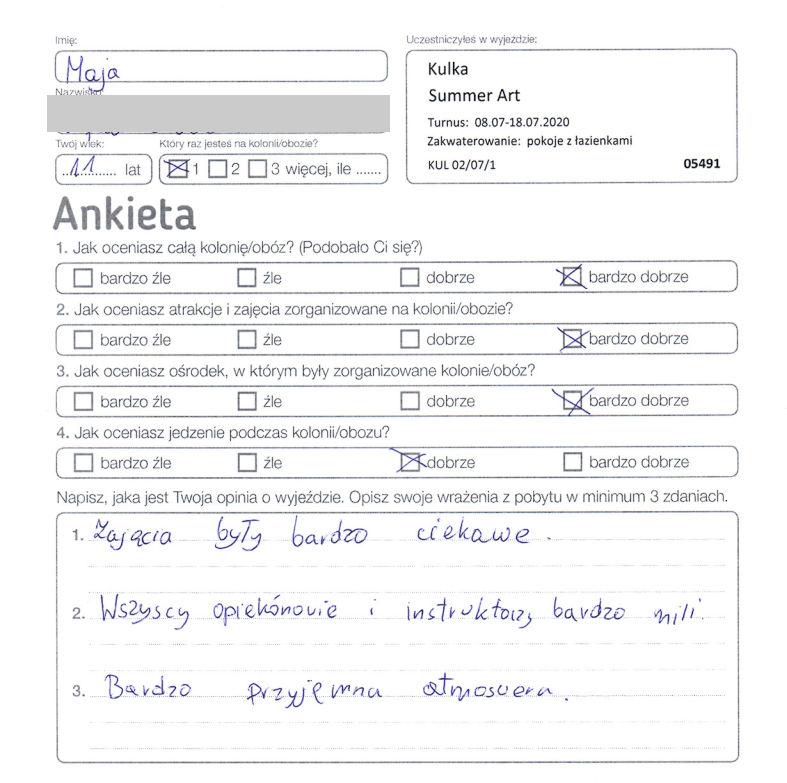 Imię:
Maja
Uczestniczyłeś w wyjeździe:
Kulka
Summer Art
Turnus: 08.07-18.07.2020
Zakwaterowanie: pokoje z łazienkami
KUL 02/07/1 05491
Nazwisko:
Twój wiek: Który raz jesteś na kolonii/obozie?
11 lat 1 2 3 więcej, ile .......
Ankieta
1. Jak oceniasz całą kolonię/obóz? (Podobało Ci się?)
bardzo źle źle dobrze bardzo dobrze
2. Jak oceniasz atrakcje i zajęcia zorganizowane na kolonii/obozie?
bardzo źle źle dobrze bardzo dobrze
3. Jak oceniasz ośrodek, w którym były zorganizowane kolonie/obóz?
bardzo źle źle dobrze bardzo dobrze
4. Jak oceniasz jedzenie podczas kolonii/obozu?
bardzo źle źle dobrze bardzo dobrze
Napisz, jaka jest Twoja opinia o wyjeździe. Opisz swoje wrażenia z pobytu w minimum 3 zdaniach.
1. Zajęcia były bardzo ciekawe.
2. Wszyscy opiekónowie i instruktorzy bardzo mili.
3. Bardzo przyjemna atmosvera.